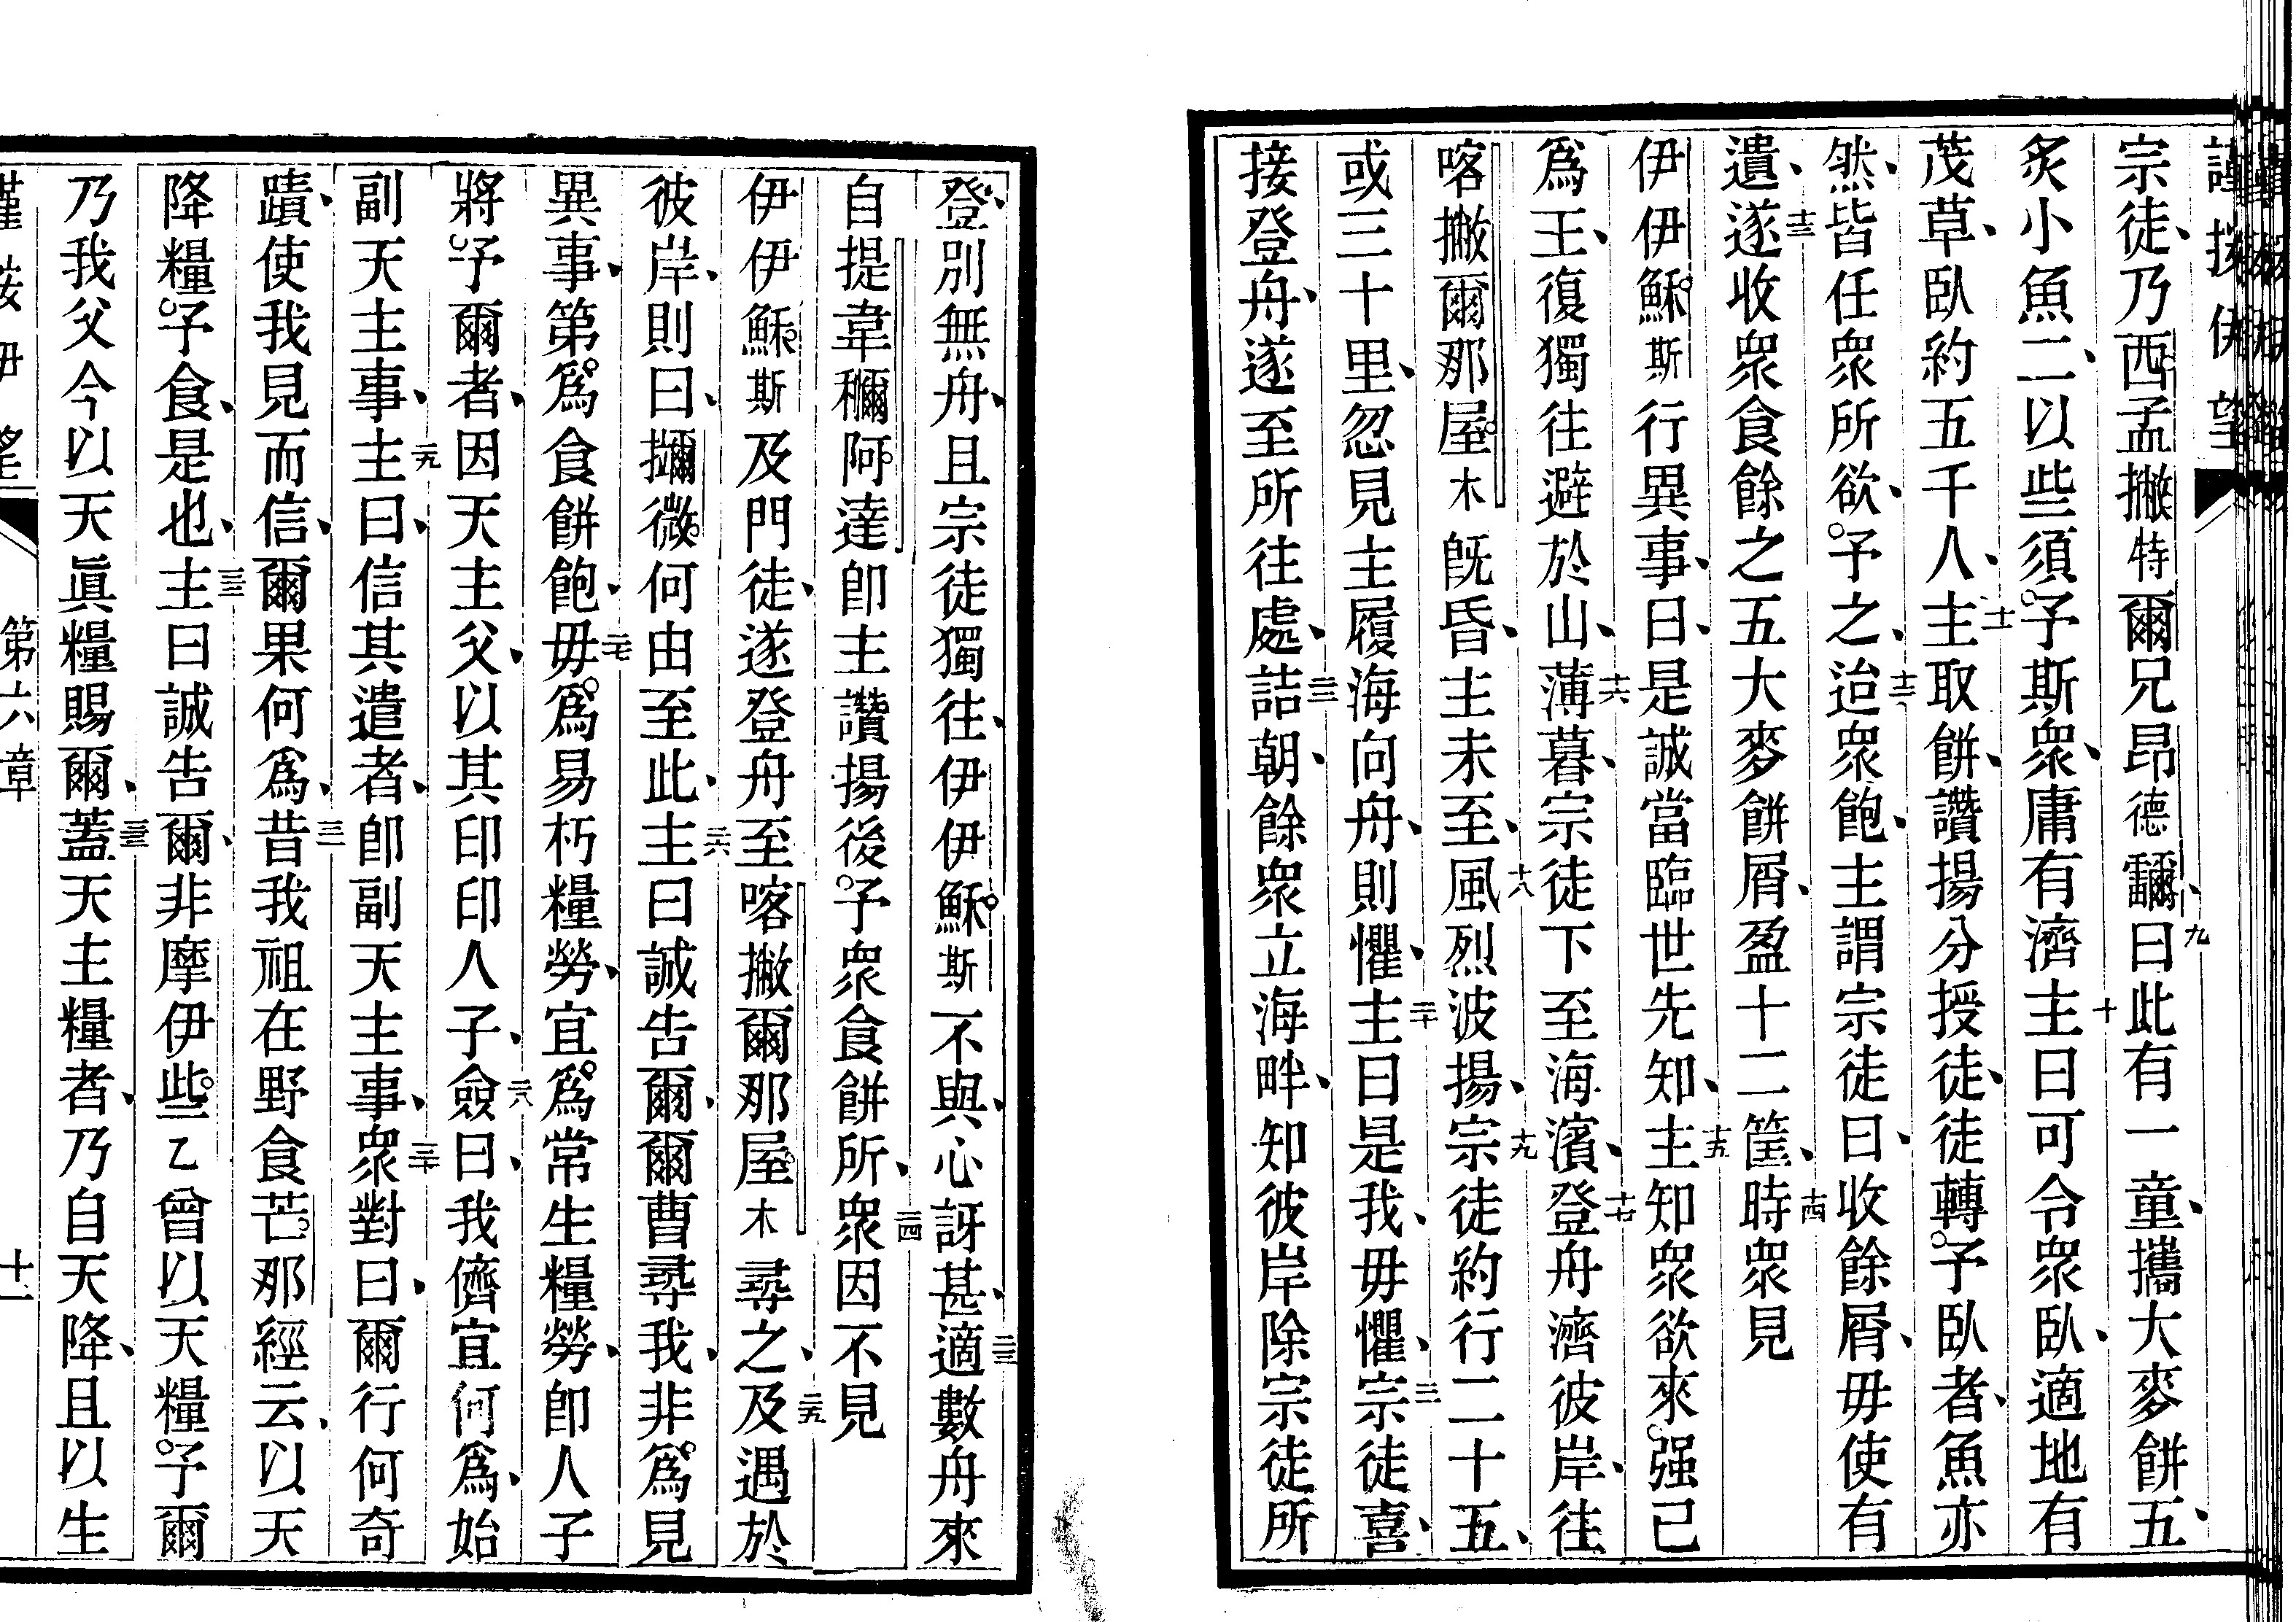 宗徒、乃西孟撇特爾兄昂德𮦀、九曰此有一童、攜大麥餅五、
炙小魚二、以些須予斯衆、庸有濟十主曰可令衆臥、適地有
茂草、臥約五千人、十一主取餅、讚揚分授徒、徒轉予臥者、魚亦
然、皆任衆所欲、予之、十二迨衆飽、主謂宗徒曰、收餘屑、毋使有
遺、十三遂收衆食餘之五大麥餅屑、盈十二筐、十四時衆見
伊伊穌斯行異事、曰、是誠當臨世先知、十五主知衆欲來强己
爲王、復獨往避於山、十六薄暮、宗徒下至海濱、十七登舟濟彼岸、往
喀撇爾那屋木旣昏、主未至、十八風烈波揚、十九宗徒約行二十五、
或三十里、忽見主履海向舟、則懼、二十主曰是我、毋懼、二一宗徒喜、
接登舟、遂至所往處、二二詰朝、餘衆立海畔、知彼岸除宗徒所
登、別無舟、且宗徒獨往、伊伊穌斯不與、心訝甚、二三適數舟來
自提韋穪阿達卽主讚揚後予衆食餅所、二四衆因不見
伊伊穌斯及門徒、遂登舟至喀撇爾那屋木尋之、二五及遇於
彼岸、則曰、攟微何由至此、二六主曰誠告爾、爾曹尋我、非爲見
異事、第爲食餅飽、二七毋爲易朽糧勞、宜爲常生糧勞、卽人子
將予爾者、因天主父、以其印印人子、二八僉曰、我儕宜何爲、始
副天主事、二九主曰、信其遣者、卽副天主事、三十衆對曰、爾行何奇
蹟、使我見而信、爾果何爲、三一昔我祖在野食芒那經云、以天
降糧予食、是也、三二主曰誠告爾、非摩伊些乙曾以天糧予爾
乃我父今以天眞糧賜爾、三三蓋天主糧者、乃自天降、且以生
第六章
十一